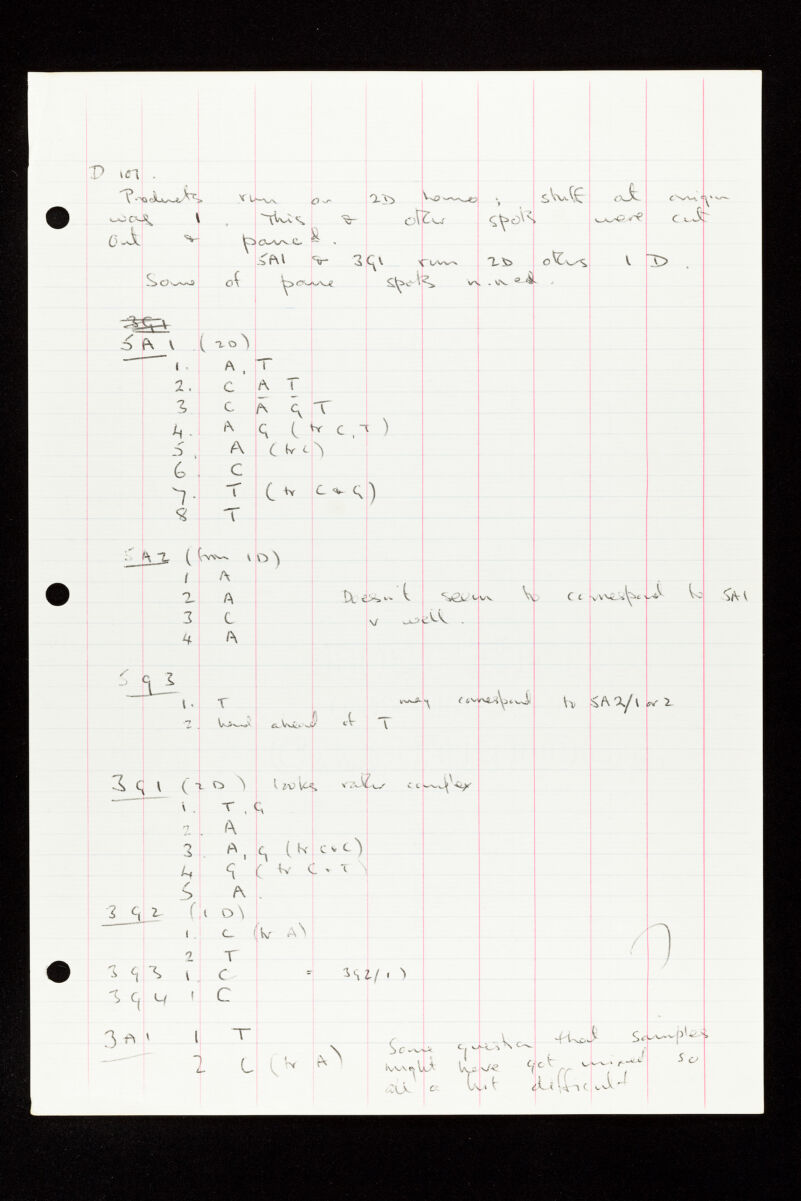 D 107.
Products run on 2D homo; stuff at origin
was 1. This & other spots were cut
out & panc d.
5A1 & 3G1 run 2D others 1 D.
Some of panc spots n.ned.
3G1
5A1 (2D)
1. A, T
2. C A T
3 C A G T
4. A G (tr C, T)
5. A (tr C)
6 C
7. T (tr C & G)
8 T
5A2 (from 1D)
1 A
2 A Doesn't seem to correspond to 5A1
3 C v well.
4 A
5G3
1. T may correspond to 5A2/1 or 2
2. ahead of T
3G1 (2D) looks rather complex
1. T, G
2. A
3. A, G (tr C)
4 G (tr C + T)
5 A.
3G2 (1 D)
1. C (tr A)
2 T
3G3 1. C = 3G2/1)
3G4 1 C
3A1 1 T Some question that samples
2 C (tr A) might have got mixed so
all a bit difficult